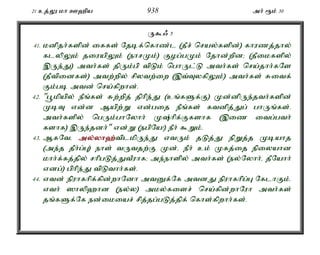 21 உத்லு மா ஊஹிய 938 அர் ரூம் 30
ருகூஃ 5
41. மனிதர்களின் கைகள் தேடிக்கொண்ட (தீச் செயல்களின்) காரணத்தால்
கடலிலும் தரையிலும் (நாசமும்) குழப்பமும் தோன்றின: (தீமைகளில்
இருந்து) அவர்கள் திரும்பி விடும் பொருட்டு அவர்கள் செய்தார்களே
(தீவினைகள்) அவற்றில் சிலவற்றை (இவ்வுலகிலும்) அவர்கள் சுவைக்
கும்படி அவன் செய்கிறான்.
42. "பூமியில் நீங்கள் சுற்றித் திரிந்து (உங்களுக்கு) முன்னிருந்தவர்களின்
முடிவு என்ன ஆயிற்று என்பதை நீங்கள் கவனித்துப் பாருங்கள்.
அவர்களில் பெரும்பாலோர் முஷ்ரிக்குகளாக (இணை வைப்பவர்
களாக) இருந்தனர்" என்று (நபியே!) நீர் கூறும்.
43. ஆகவே, அல்லாஹ்விடமிருந்து எவரும் தடுத்து நிறுத்த முடியாத
(அந்த தீர்ப்பு) நாள் வருவதற்கு முன், நீர் உம் முகத்தை நிலையான
மார்க்கத்தில் சரிபடுத்துவீராக: அந்நாளில் அவர்கள் (நல்லோர், தீயோர்
எனப்) பிரிந்து விடுவார்கள்.
44. எவன் நிராகரிக்கின்றானோ அவனுக்கே அவனது நிராகரிப்பு கேடாகும்.
எவர் ஸாலிஹான (நல்ல) அமல்களைச் செய்கின்றாரோ அவர்கள்
தங்களுக்கே நன்மையைச் சித்தப்படுத்திக் கொள்கிறார்கள்.